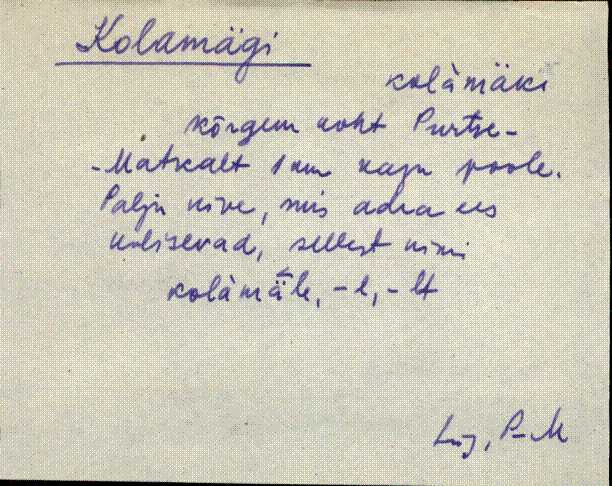 Kolamägi
kolàmäki
kõrgem koht Purtse-
-Matkalt 1 km kagu poole.
Palju kive, mis adra ees
kolisevad, sellest nimi
kolàmä̀le, -l, -lt
Lüg, P-M